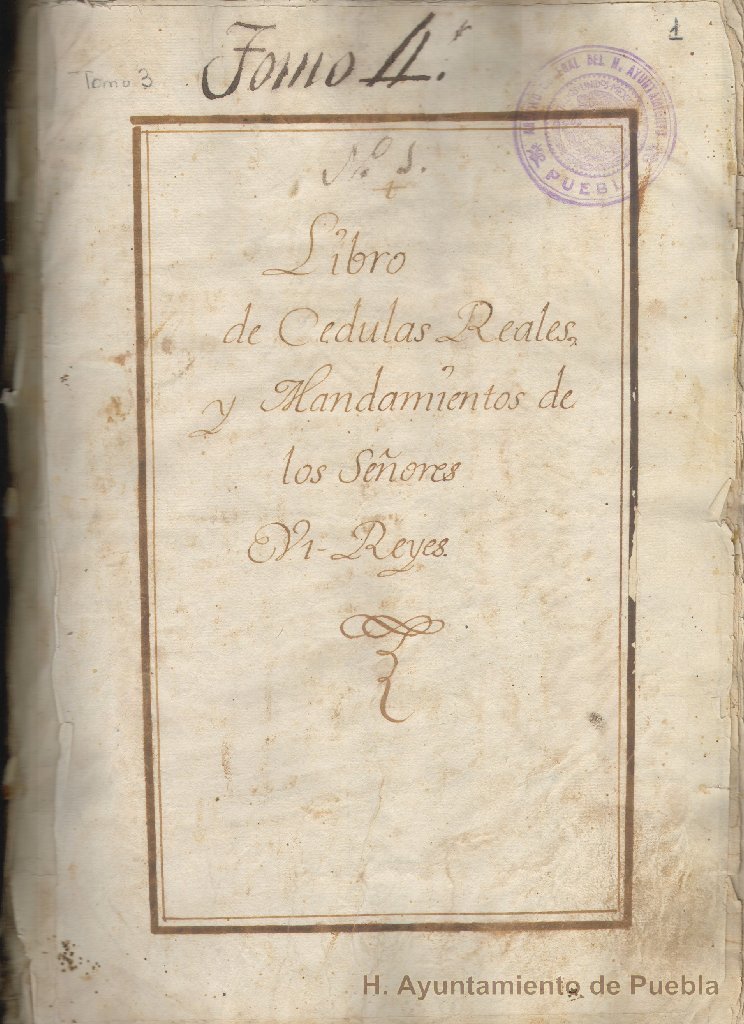 1
Tomo 4.º
Tomo 3
DEL H. AYUNTAMIENTO
PUEBLA
N.º 1.
Libro
de Cedulas Reales,
y Mandamientos de
los Señores
Vi-Reyes.
H. Ayuntamiento de Puebla